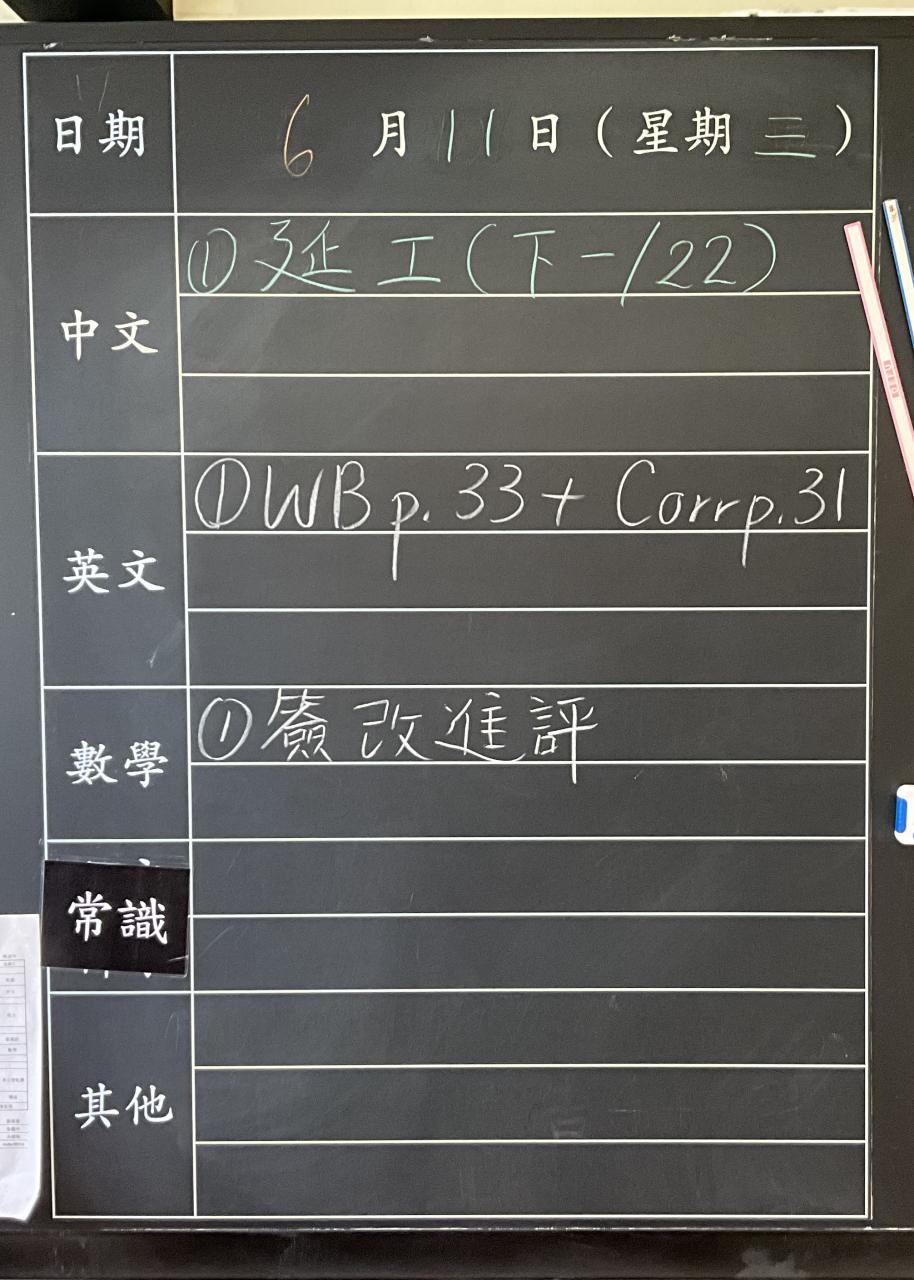 日期 6月11日(星期三)
中文 ①延工(下一/22)
英文 ①WB p.33 + Corr p.31
數學 ①簽改進評
常識
其他